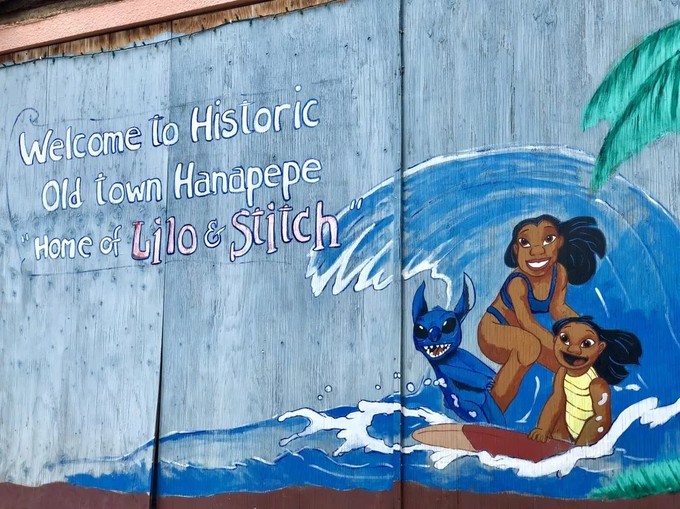 Welcome to Historic
Old town Hanapepe
"Home of Lilo & Stitch"